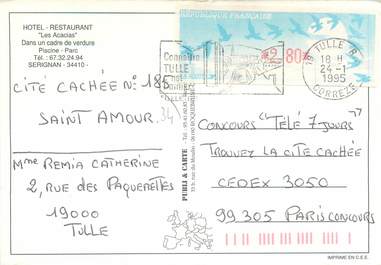 HOTEL - RESTAURANT
"Les Acacias"
Dans un cadre de verdure
Piscine - Parc
Tél : 67.32.24.94
SERIGNAN - 34410 -
CITÉ CACHÉE N° 185
SAINT AMOUR. 34
Mme REMIA CATHERINE
2, RUE DES PAQUERETTES
19000
TULLE
Connaître
TULLE
PUBLI & CARTE
RÉPUBLIQUE FRANÇAISE
2,80
19 TULLE
18 H
24-1
1995
CORREZE
CONCOURS "TÉLÉ 7 JOURS"
TROUVEZ LA CITE CACHÉE
CEDEX 3050
99.305 PARIS CONCOURS
IMPRIME EN C.E.E.